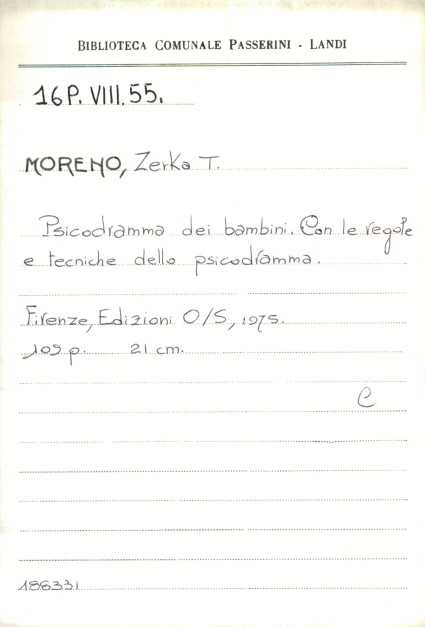 BIBLIOTECA COMUNALE PASSERINI - LANDI
16P. VIII. 55.
MORENO, Zerka T.
Psicodramma dei bambini. Con le regole
e tecniche dello psicodramma.
Firenze, Edizioni O/S, 1975.
109 p. 21 cm.
C
186331